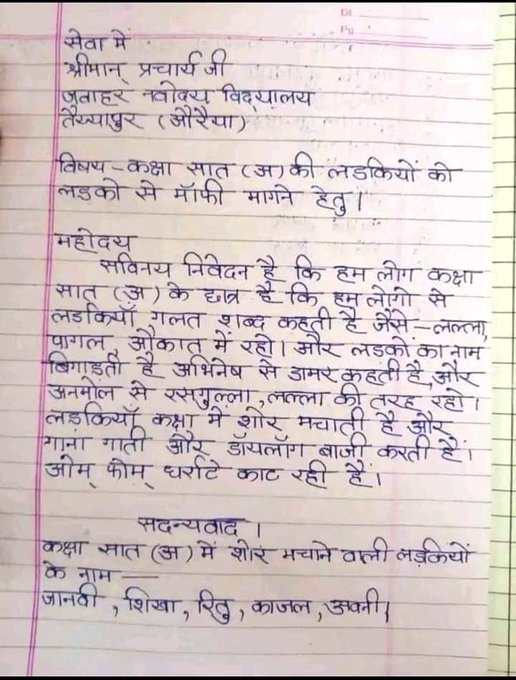 Dt.
Pg
सेवा में
श्रीमान् प्रचार्य जी
जवाहर नवोदय विद्यालय
तैय्यापुर (औरैया)
विषय - कक्षा सात (अ) की लडकियों को
लडको से मॉफी मागने हेतु।
महोदय
सविनय निवेदन है कि हम लोग कक्षा
सात (अ) के छात्र है कि हम लोगो से
लडकियाँ गलत शब्द कहती है जैसे - लल्ला,
पागल, औकात में रहो। और लडकों का नाम
बिगाडती है अभिनेष से डामर कहती है, और
अनमोल से रसगुल्ला, लल्ला की तरह रहो।
लड़कियाँ कक्षा में शोर मचाती है और
गाना गाती और डॉयलॉग बाजी करती हैं।
ओम् फोम् धर्राटे काट रही हैं।
सदन्यवाद ।
कक्षा सात (अ) में शोर मचाने वाली लड़कियों
के नाम —
जानवी, शिखा, रितु, काजल, अवनी।